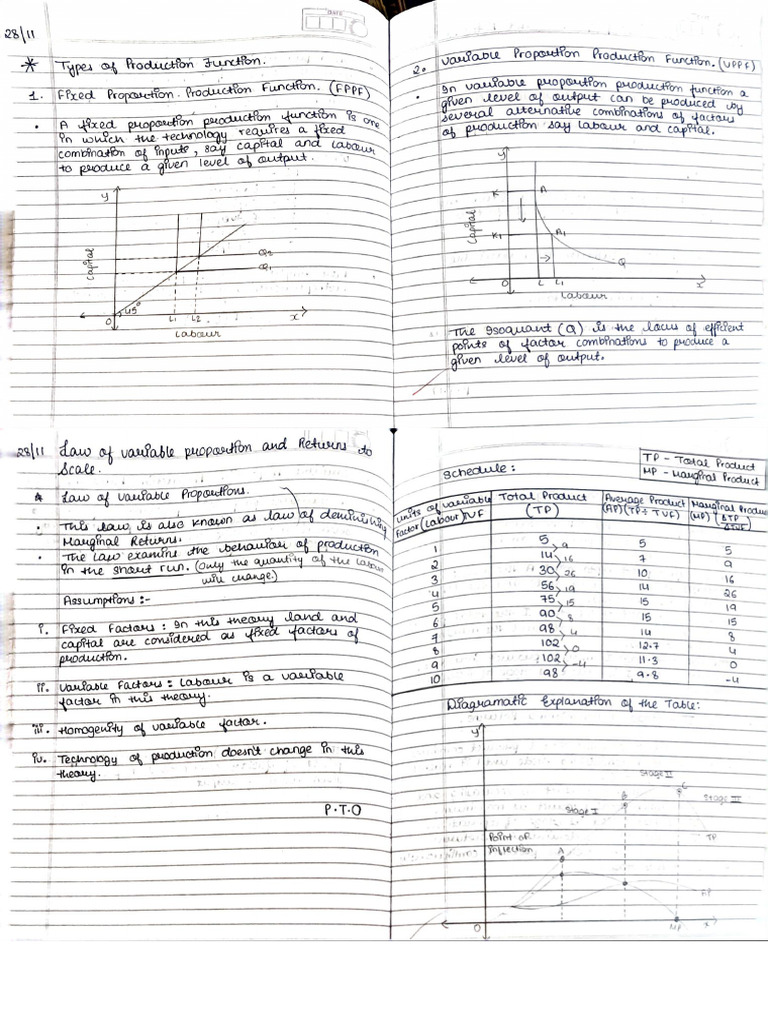 28/11
* Types of Production Function.
1. Fixed Proportion Production Function. (FPPF)
• A fixed proportion production function is one
in which the technology requires a fixed
combination of inputs, say capital and labour
to produce a given level of output.
y
Capital
Q2
Q1
45°
O
L1 L2
x
Labour
2. Variable Proportion Production Function. (VPPF)
• In variable proportion production function a
given level of output can be produced by
several alternative combinations of factors
of production say labour and capital.
y
K
A
Capital
K1
A1
Q
O
L L1
x
Labour
The Isoquant (Q) is the locus of efficient
points of factor combinations to produce a
given level of output.
28/11 Law of variable proportion and Returns to
Scale.
* Law of variable Proportions.
• This law is also known as law of deminishing
Marginal Returns.
• The law examine the behavior of production
in the short run. (Only the quantity of the labour
will change.)
Assumptions :-
i. Fixed Factors : In this theory land and
capital are considered as fixed factors of
production.
ii. Variable Factors : Labour is a variable
factor in this theory.
iii. Homogenity of variable factor.
iv. Technology of production doesn't change in this
theory.
P.T.O
TP - Total Product
MP - Marginal Product
Schedule :
Units of variable factor (Labour) TVF | Total Product (TP) | Average Product (AP) (TP ÷ TVF) | Marginal Product (MP) (ΔTP/ΔTVF)
1 5 5 5
9
2 14 7 9
16
3 30 10 16
26
4 56 14 26
19
5 75 15 19
15
6 90 15 15
8
7 98 14 8
4
8 102 12.7 4
0
9 102 11.3 0
-4
10 98 9.8 -4
Diagramatic Explanation of the Table:
y
Stage II
B
C
Stage III
Stage I
TP
Point of
inflection
A
AP
O
MP
x